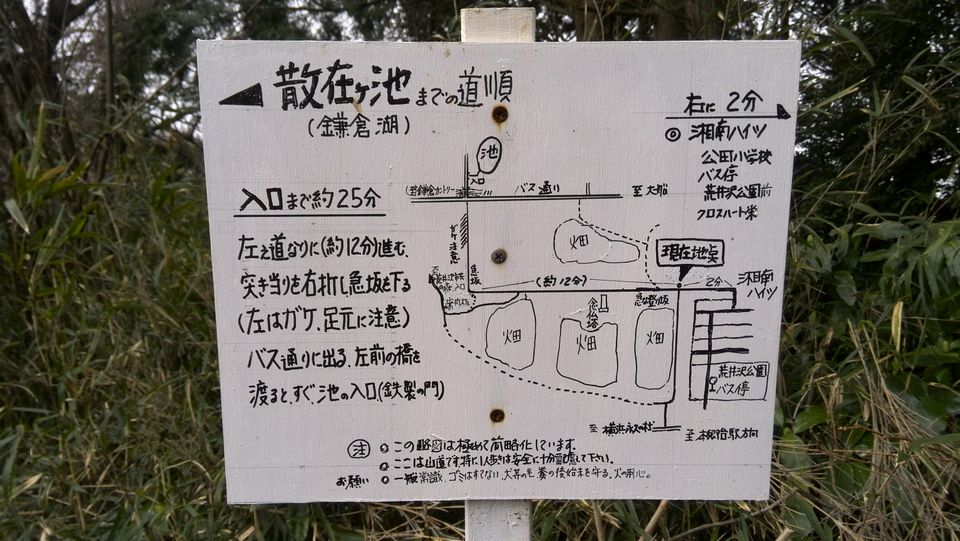 散在ヶ池までの道順
(鎌倉湖)
入口まで約25分
左え道なりに(約12分)進む、
突き当りを右折し急坂を下る
(左はガケ、足元に注意)
バス通りに出る、左前の橋を
渡るとすぐ池の入口(鉄製の門)
右に 2分
◎ 湘南ハイツ
公田小学校
バス停
荒井沢公園前
クロスハート栄
池
入口
バス通り
至大船
ガケ注意
急坂
畑
現在地点
(約12分)
2分
湘南ハイツ
入口
念仏塔
畑
畑
畑
荒井沢公園
バス停
至
至 本郷台駅方向
注 ○この略図は極めて簡略化しています。
○ここは山道です、特に1人歩きは安全に十分配慮して下さい。
お願い ○一般常識、ゴミはすてない、犬等の糞の後始末を守る、火の用心。